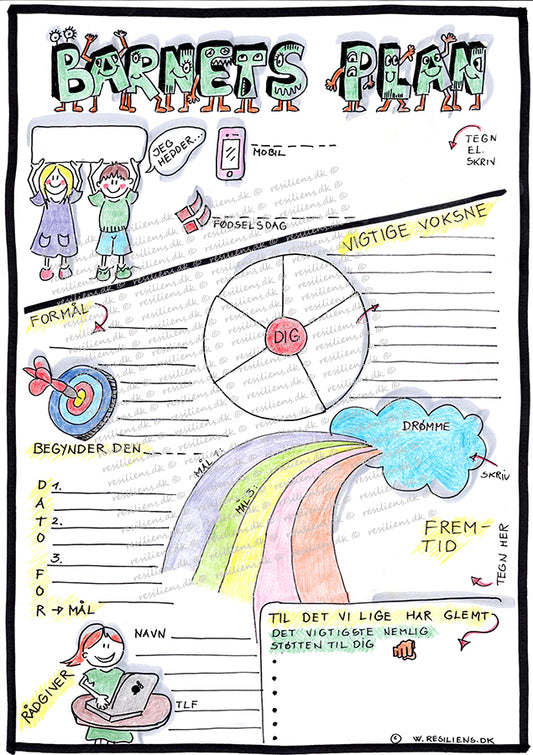 BARNETS PLAN
JEG
HEDDER...
MOBIL
TEGN
EL.
SKRIV
FØDSELSDAG
VIGTIGE VOKSNE
FORMÅL
DIG
DRØMME
BEGYNDER DEN
MÅL 1:
MÅL 3:
SKRIV
DATO FOR → MÅL
1.
2.
3.
FREM-
TID
TEGN HER
TIL DET VI LIGE HAR GLEMT
DET VIGTIGSTE NEMLIG
STØTTEN TIL DIG
NAVN
RÅDGIVER
TLF
© W.RESILIENS.DK
resiliens.dk ©